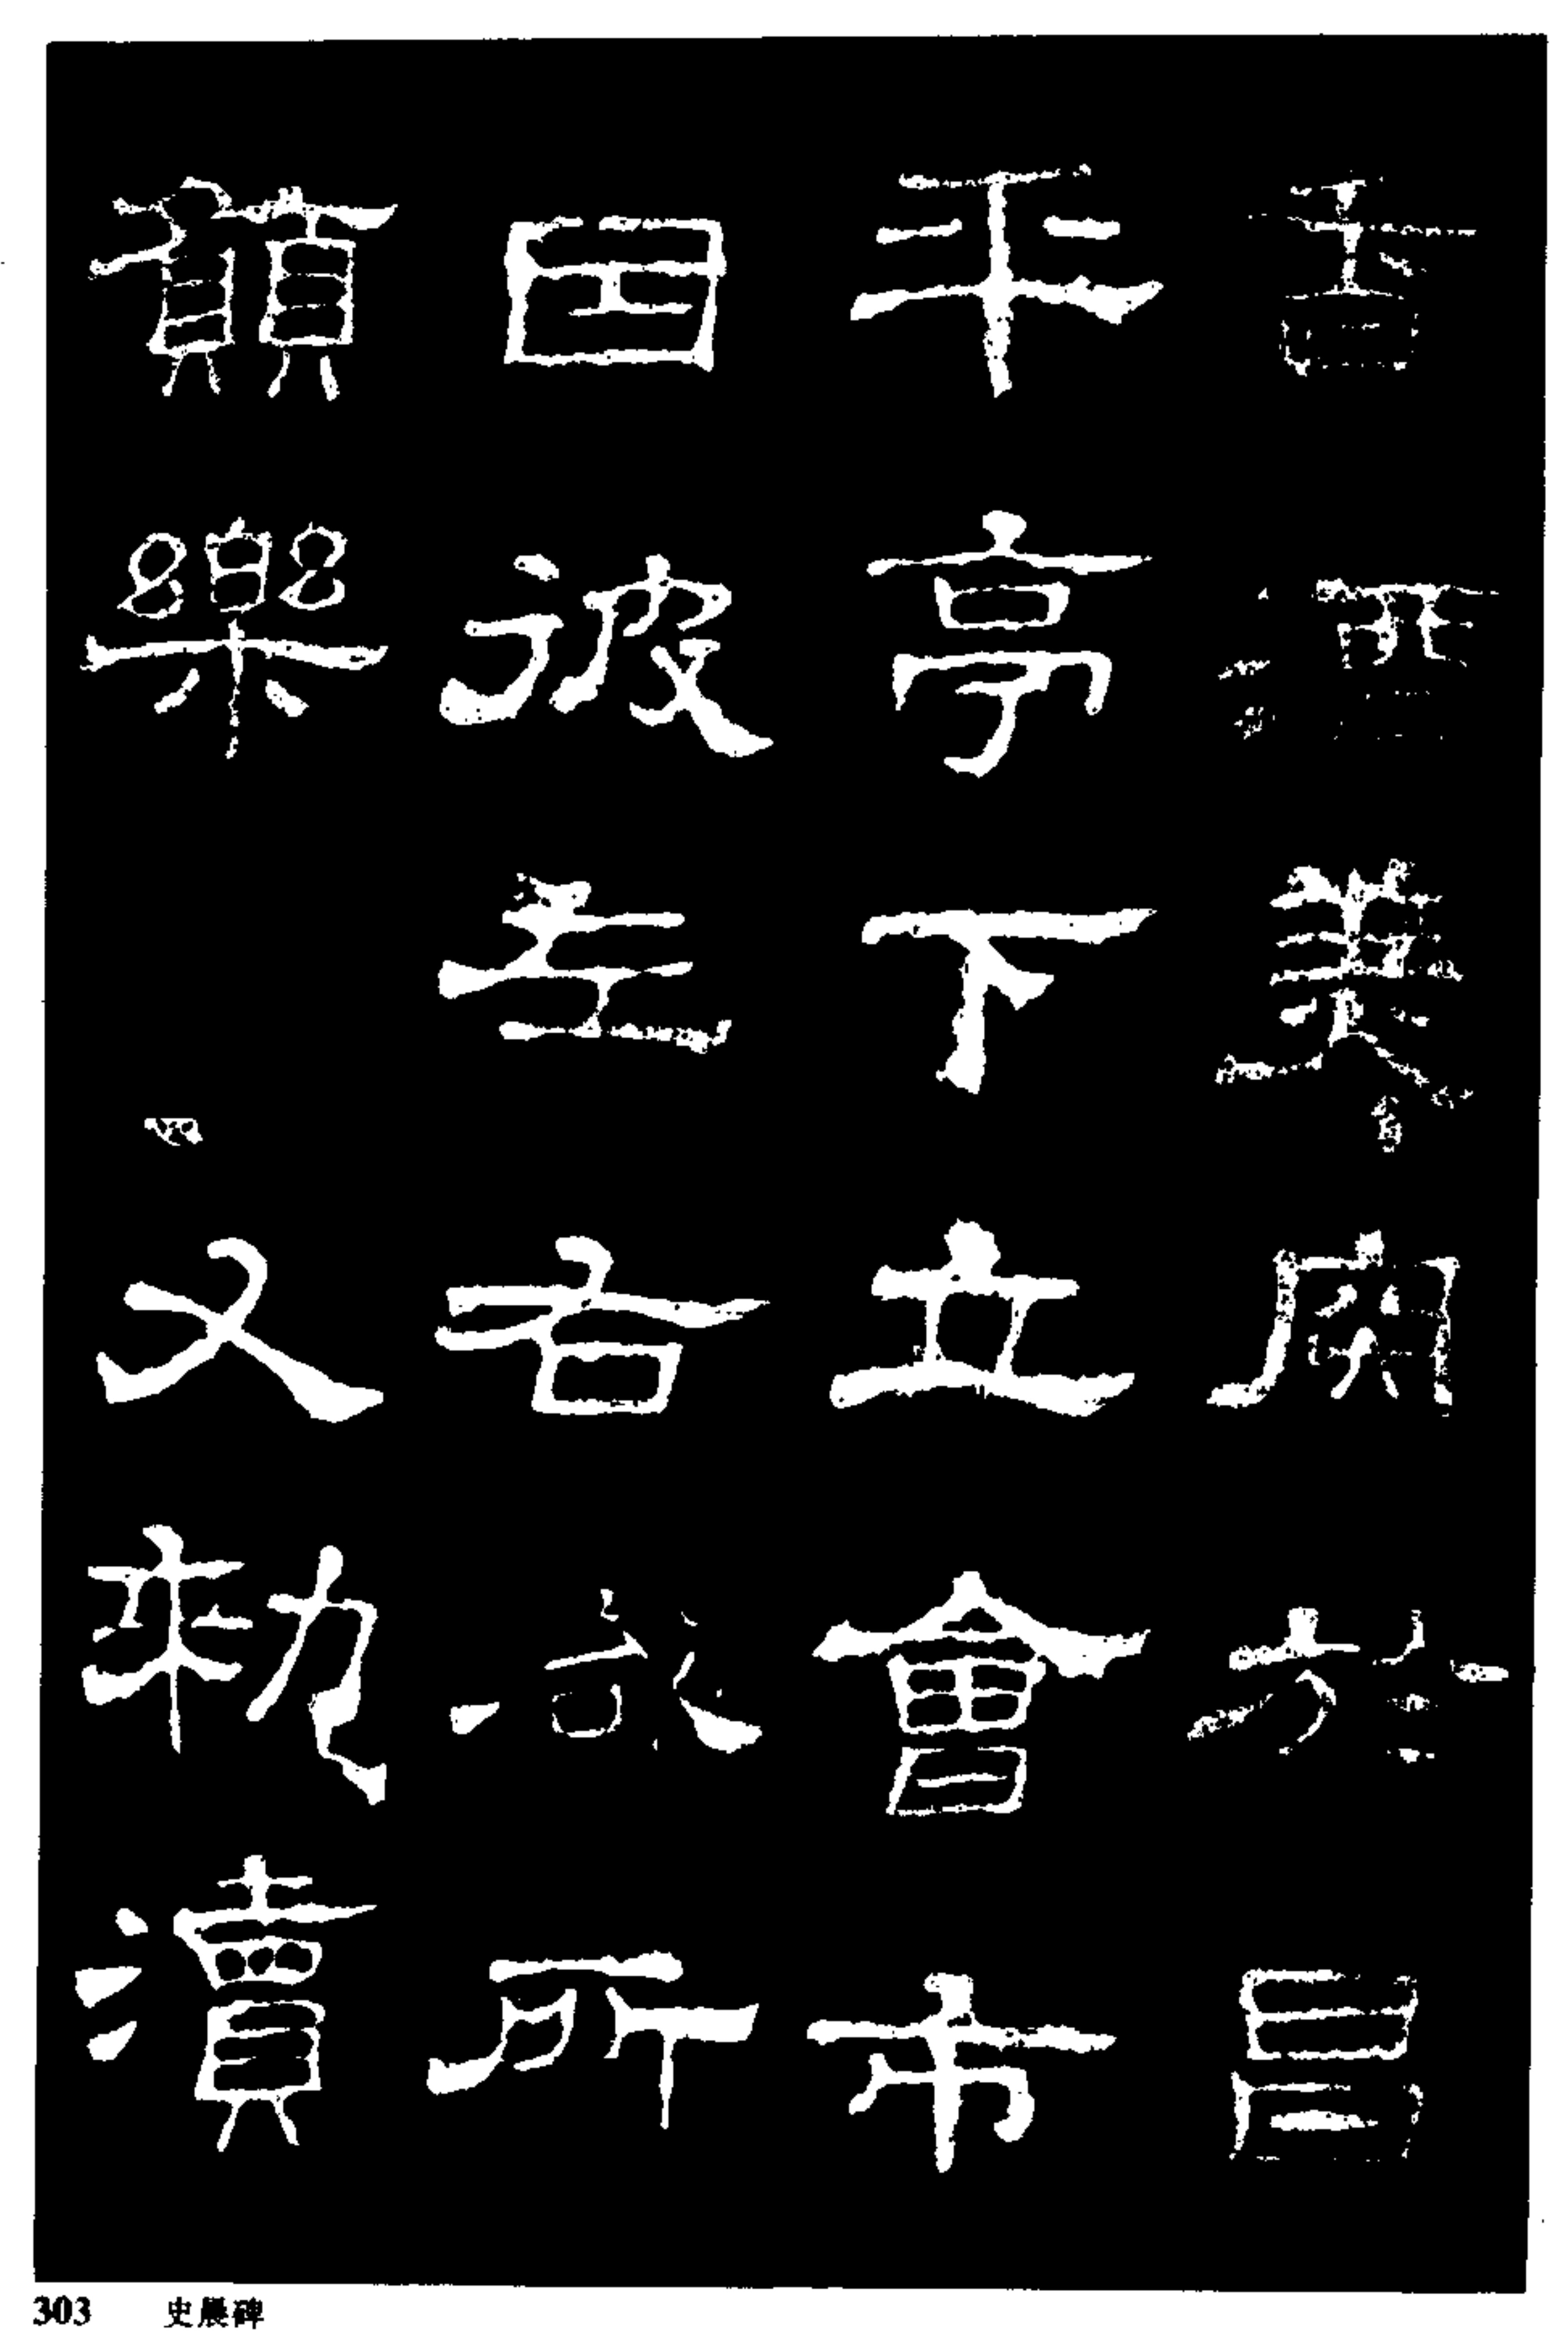 香酒美肉於昌
平亭下立會市
因彼左右咸所
願樂
又勑瀆
303 史晨碑